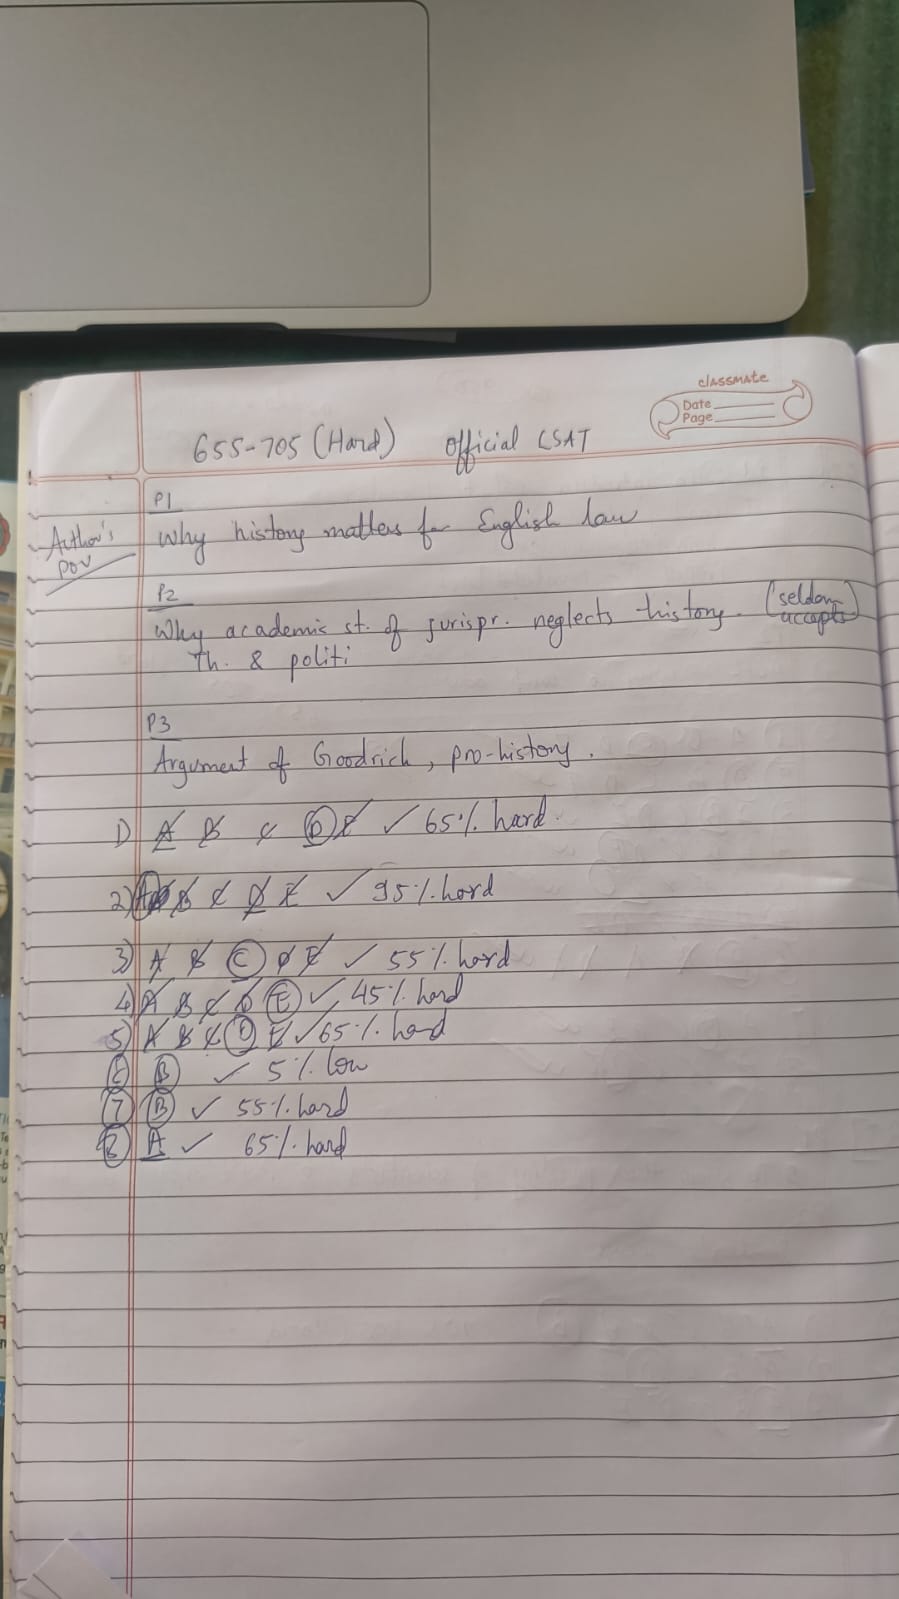 classmate
Date
Page
655-705 (Hard) Official LSAT
P1
Author's POV
Why history matters for English law
P2
Why academic st. of jurispr. neglects history. (seldom accepts)
Th. & politi
P3
Argument of Goodrich, pro-history.
1) A B C D E ✓ 65% hard.
2) A B C D E ✓ 95% hard
3) A B C D E ✓ 55% hard
4) A B C D E ✓ 45% hard
5) A B C D E ✓ 65% hard
6 B ✓ 5% low
7 B ✓ 55% hard
8 A ✓ 65% hard